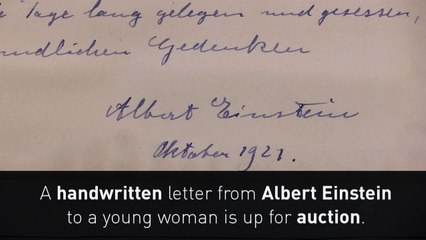 Tage lang gelegen und gesessen,
Gedenken
Albert Einstein
Oktober 1921.
A handwritten letter from Albert Einstein
to a young woman is up for auction.